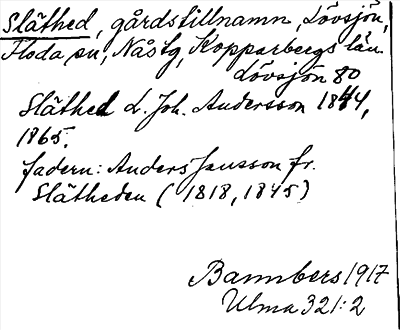 Släthed, gårdstillnamn, Lövsjön,
Floda sn, Nås tg, Kopparbergs län
Lövsjön 80
Släthed L. Joh. Andersson 1844,
1865.
fadern: Anders Jansson fr.
Slätheden (1818, 1845)
Bannbers 1917
Ulma 321:2